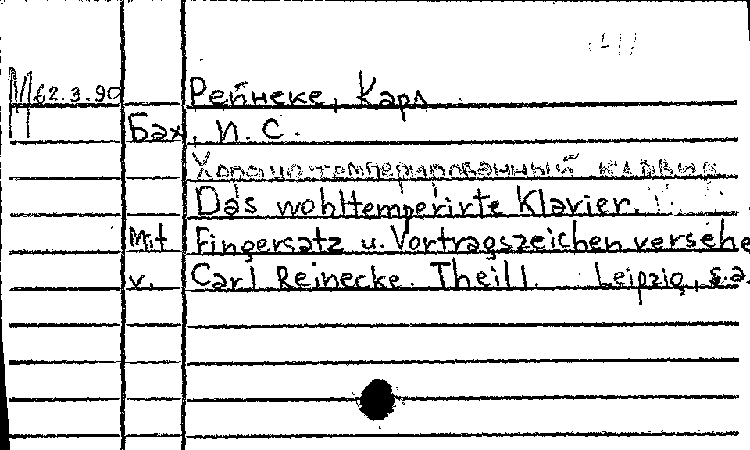 M 62.3.90 Рейнеке, Карл
Бах, И. С.
Хорошо темперированный клавир
Das wohltemperirte Klavier.
Mit Fingersatz u. Vortragszeichen versehe
v. Carl Reinecke. Theil I. Leipzig, s.a.